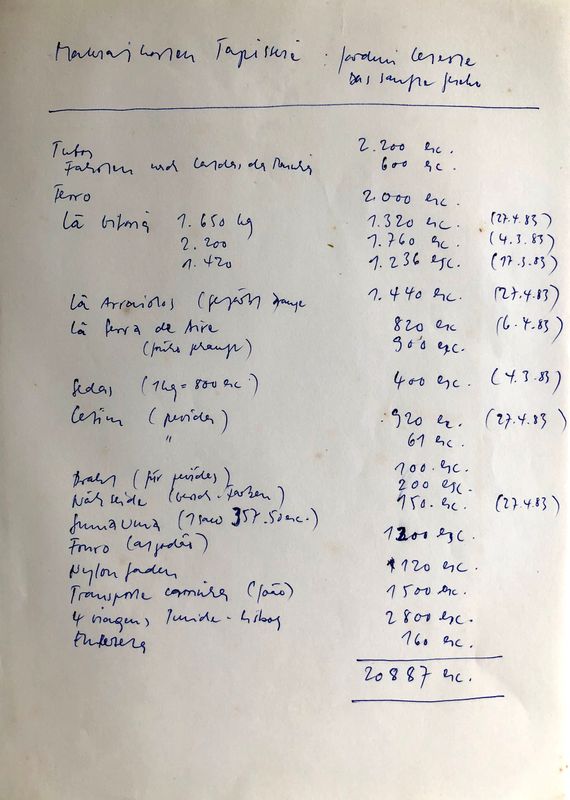 Materialkosten Tapisserie : Jardim Celeste
Das sanfte
Tubos 2.200 esc.
600 esc.
Ferro 2.000 esc.
Lã 1.650 kg 1.320 esc. (27.4.83)
2.200 1.760 esc. (4.3.83)
1.420 1.236 esc. (17.3.83)
Lã Arraiolos 1.440 esc. (27.4.83)
Lã Serra de Aire 820 esc (6.4.83)
900 esc.
Sedas (1kg = 800 esc.) 400 esc. (4.3.83)
Cetim (pevides) 920 esc. (27.4.83)
" 61 esc.
Draht (für pevides) 100. esc.
Nähseide (versch. Farben) 200 esc.
Sumauma (1 saco 357.50 esc.) 150. esc. (27.4.83)
Forro (algodão) 1200 esc.
Nylonfaden 120 esc.
Transporte (João) 1500 esc.
4 viagens - Lisboa 2800 esc.
160 esc.
20887 esc.